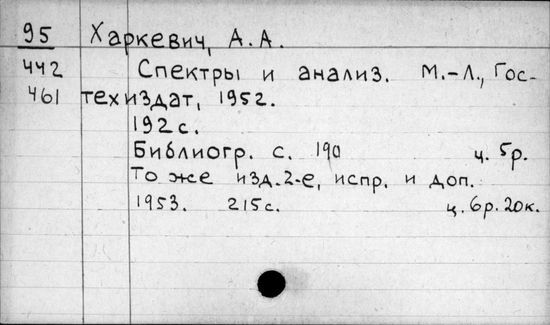 95 Харкевич, А.А.
442 Спектры и анализ. М.-Л., Гос-
461 техиздат, 1952.
192 с.
Библиогр. с. 190 ц. 5р.
То же изд. 2-е, испр. и доп.
1953. 215 с. ц. 6р. 20к.